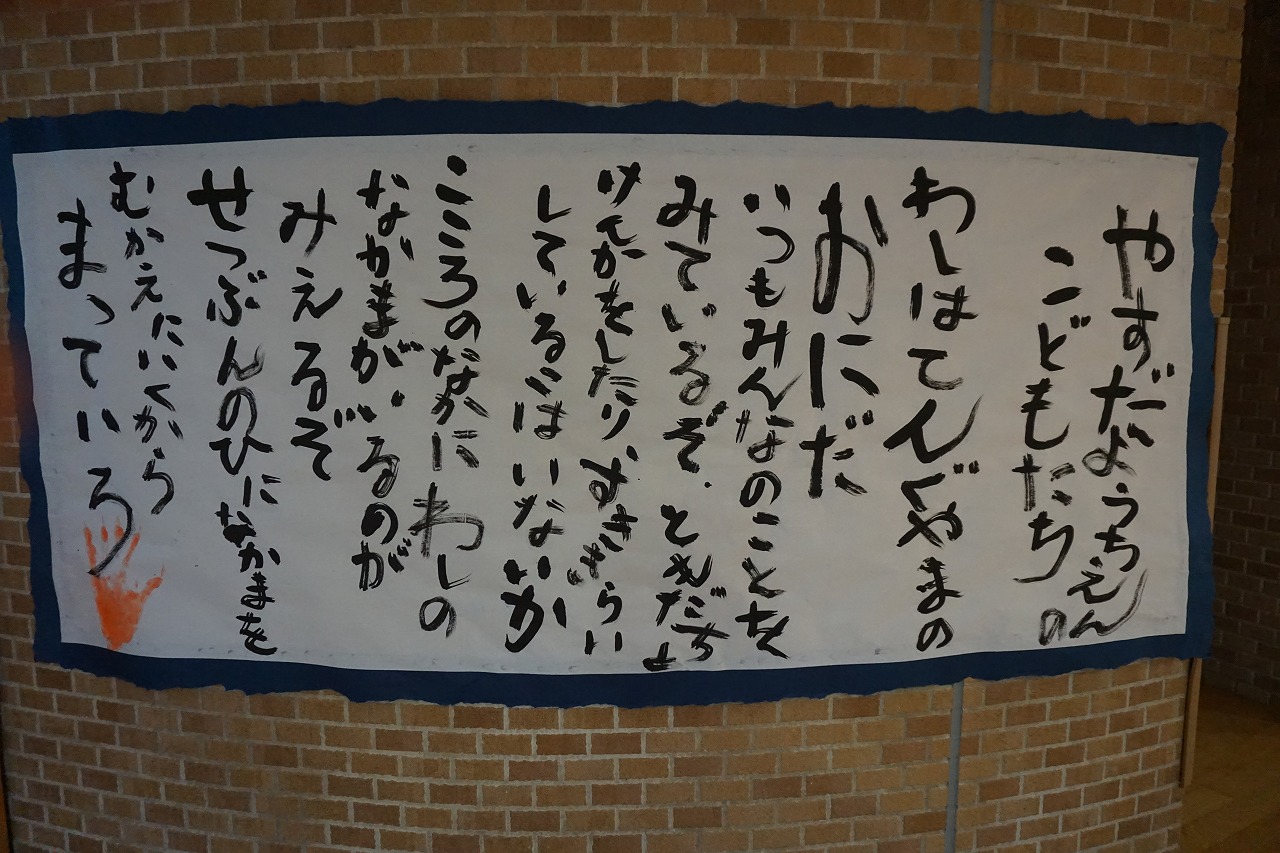 やすだようちえんの
こどもたち
わしはてんぐやまの
おにだ
いつもみんなのことを
みているぞ．ともだちと
けんかをしたり、すききらい
しているこはいないか
こころのなかにわしの
なかまがいるのが
みえるぞ
せつぶんのひになかまを
むかえににいくから
まっていろ